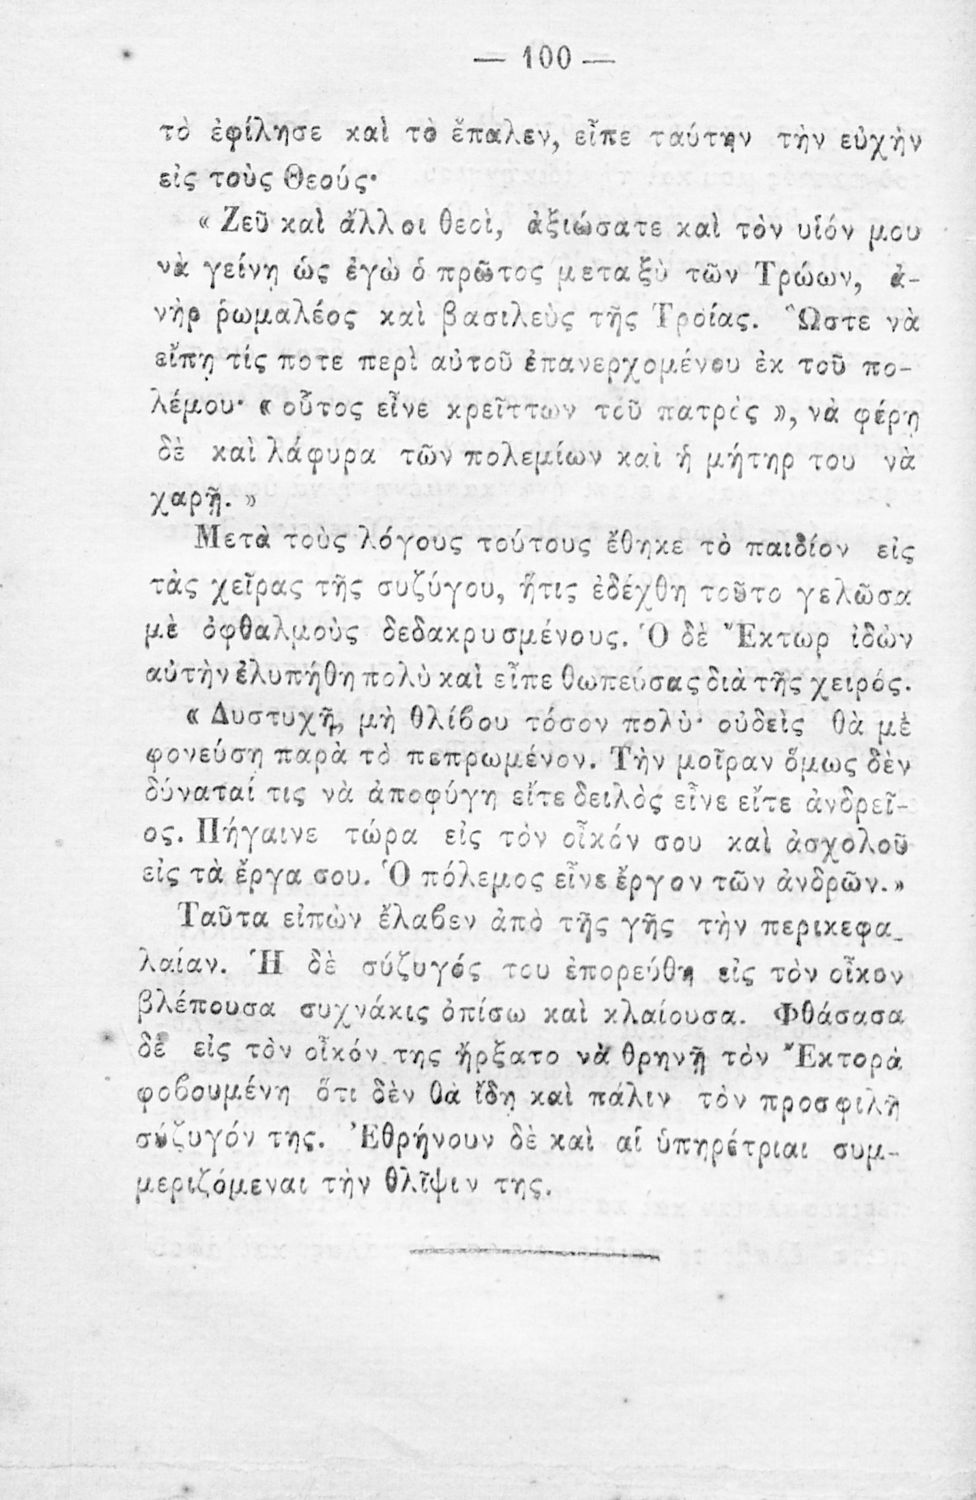 — 100 —
τὸ ἐφίλησε καὶ τὸ ἔπαλεν, εἶπε ταύτην τὴν εὐχὴν
εἰς τοὺς Θεούς·
« Ζεῦ καὶ ἄλλοι θεοὶ, ἀξιώσατε καὶ τὸν υἱόν μου
νὰ γείνῃ ὡς ἐγὼ ὁ πρῶτος μεταξὺ τῶν Τρώων, ἀ-
νὴρ ῥωμαλέος καὶ βασιλεὺς τῆς Τροίας. Ὥστε νὰ
εἴπῃ τίς ποτε περὶ αὐτοῦ ἐπανερχομένου ἐκ τοῦ πο-
λέμου· « οὗτος εἶνε κρείττων τοῦ πατρὸς », νὰ φέρῃ
δὲ καὶ λάφυρα τῶν πολεμίων καὶ ἡ μήτηρ του νὰ
χαρῇ. »
Μετὰ τοὺς λόγους τούτους ἔθηκε τὸ παιδίον εἰς
τὰς χεῖρας τῆς συζύγου, ἥτις ἐδέχθη τοῦτο γελῶσα
μὲ ὀφθαλμοὺς δεδακρυσμένους. Ὁ δὲ Ἕκτωρ ἰδὼν
αὐτὴν ἐλυπήθη πολὺ καὶ εἶπε θωπεύσας διὰ τῆς χειρός.
« Δυστυχῆ, μὴ θλίβου τόσον πολὺ· οὐδεὶς θὰ μὲ
φονεύσῃ παρὰ τὸ πεπρωμένον. Τὴν μοῖραν ὅμως δὲν
δύναταί τις νὰ ἀποφύγῃ εἴτε δειλὸς εἶνε εἴτε ἀνδρεῖ-
ος. Πήγαινε τώρα εἰς τὸν οἶκόν σου καὶ ἀσχολοῦ
εἰς τὰ ἔργα σου. Ὁ πόλεμος εἶνε ἔργον τῶν ἀνδρῶν.»
Ταῦτα εἰπὼν ἔλαβεν ἀπὸ τῆς γῆς τὴν περικεφα-
λαίαν. Ἡ δὲ σύζυγός του ἐπορεύθη εἰς τὸν οἶκον
βλέπουσα συχνάκις ὀπίσω καὶ κλαίουσα. Φθάσασα
δὲ εἰς τὸν οἶκόν της ἤρξατο νὰ θρηνῇ τὸν Ἕκτορὰ
φοβουμένη ὅτι δὲν θὰ ἴδῃ καὶ πάλιν τὸν προσφιλῆ
σύζυγόν της. Ἐθρήνουν δὲ καὶ αἱ ὑπηρέτριαι συμ-
μεριζόμεναι τὴν θλῖψιν της.